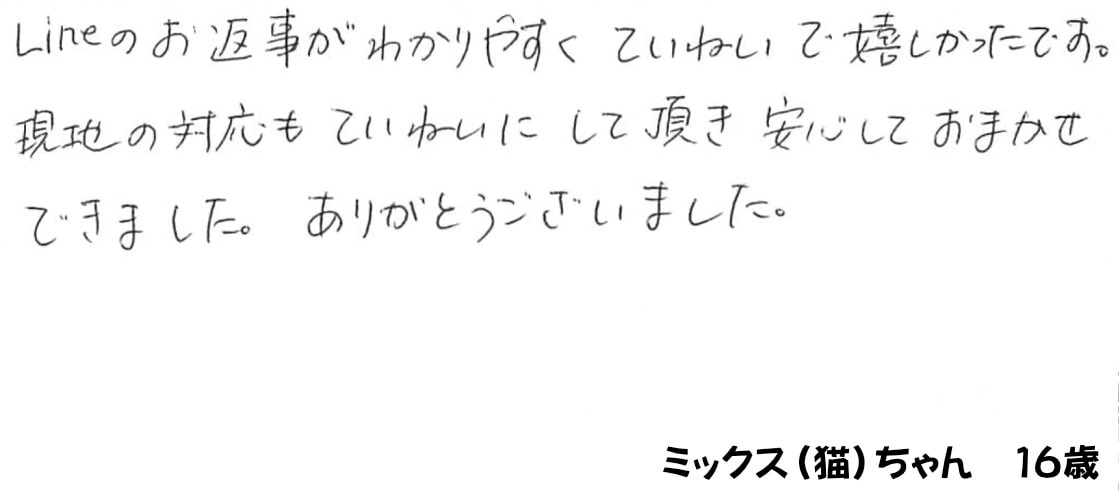 Lineのお返事がわかりやすくていねいで嬉しかったです。
現地の対応もていねいにして頂き安心しておまかせ
できました。ありがとうございました。
ミックス(猫)ちゃん　16歳